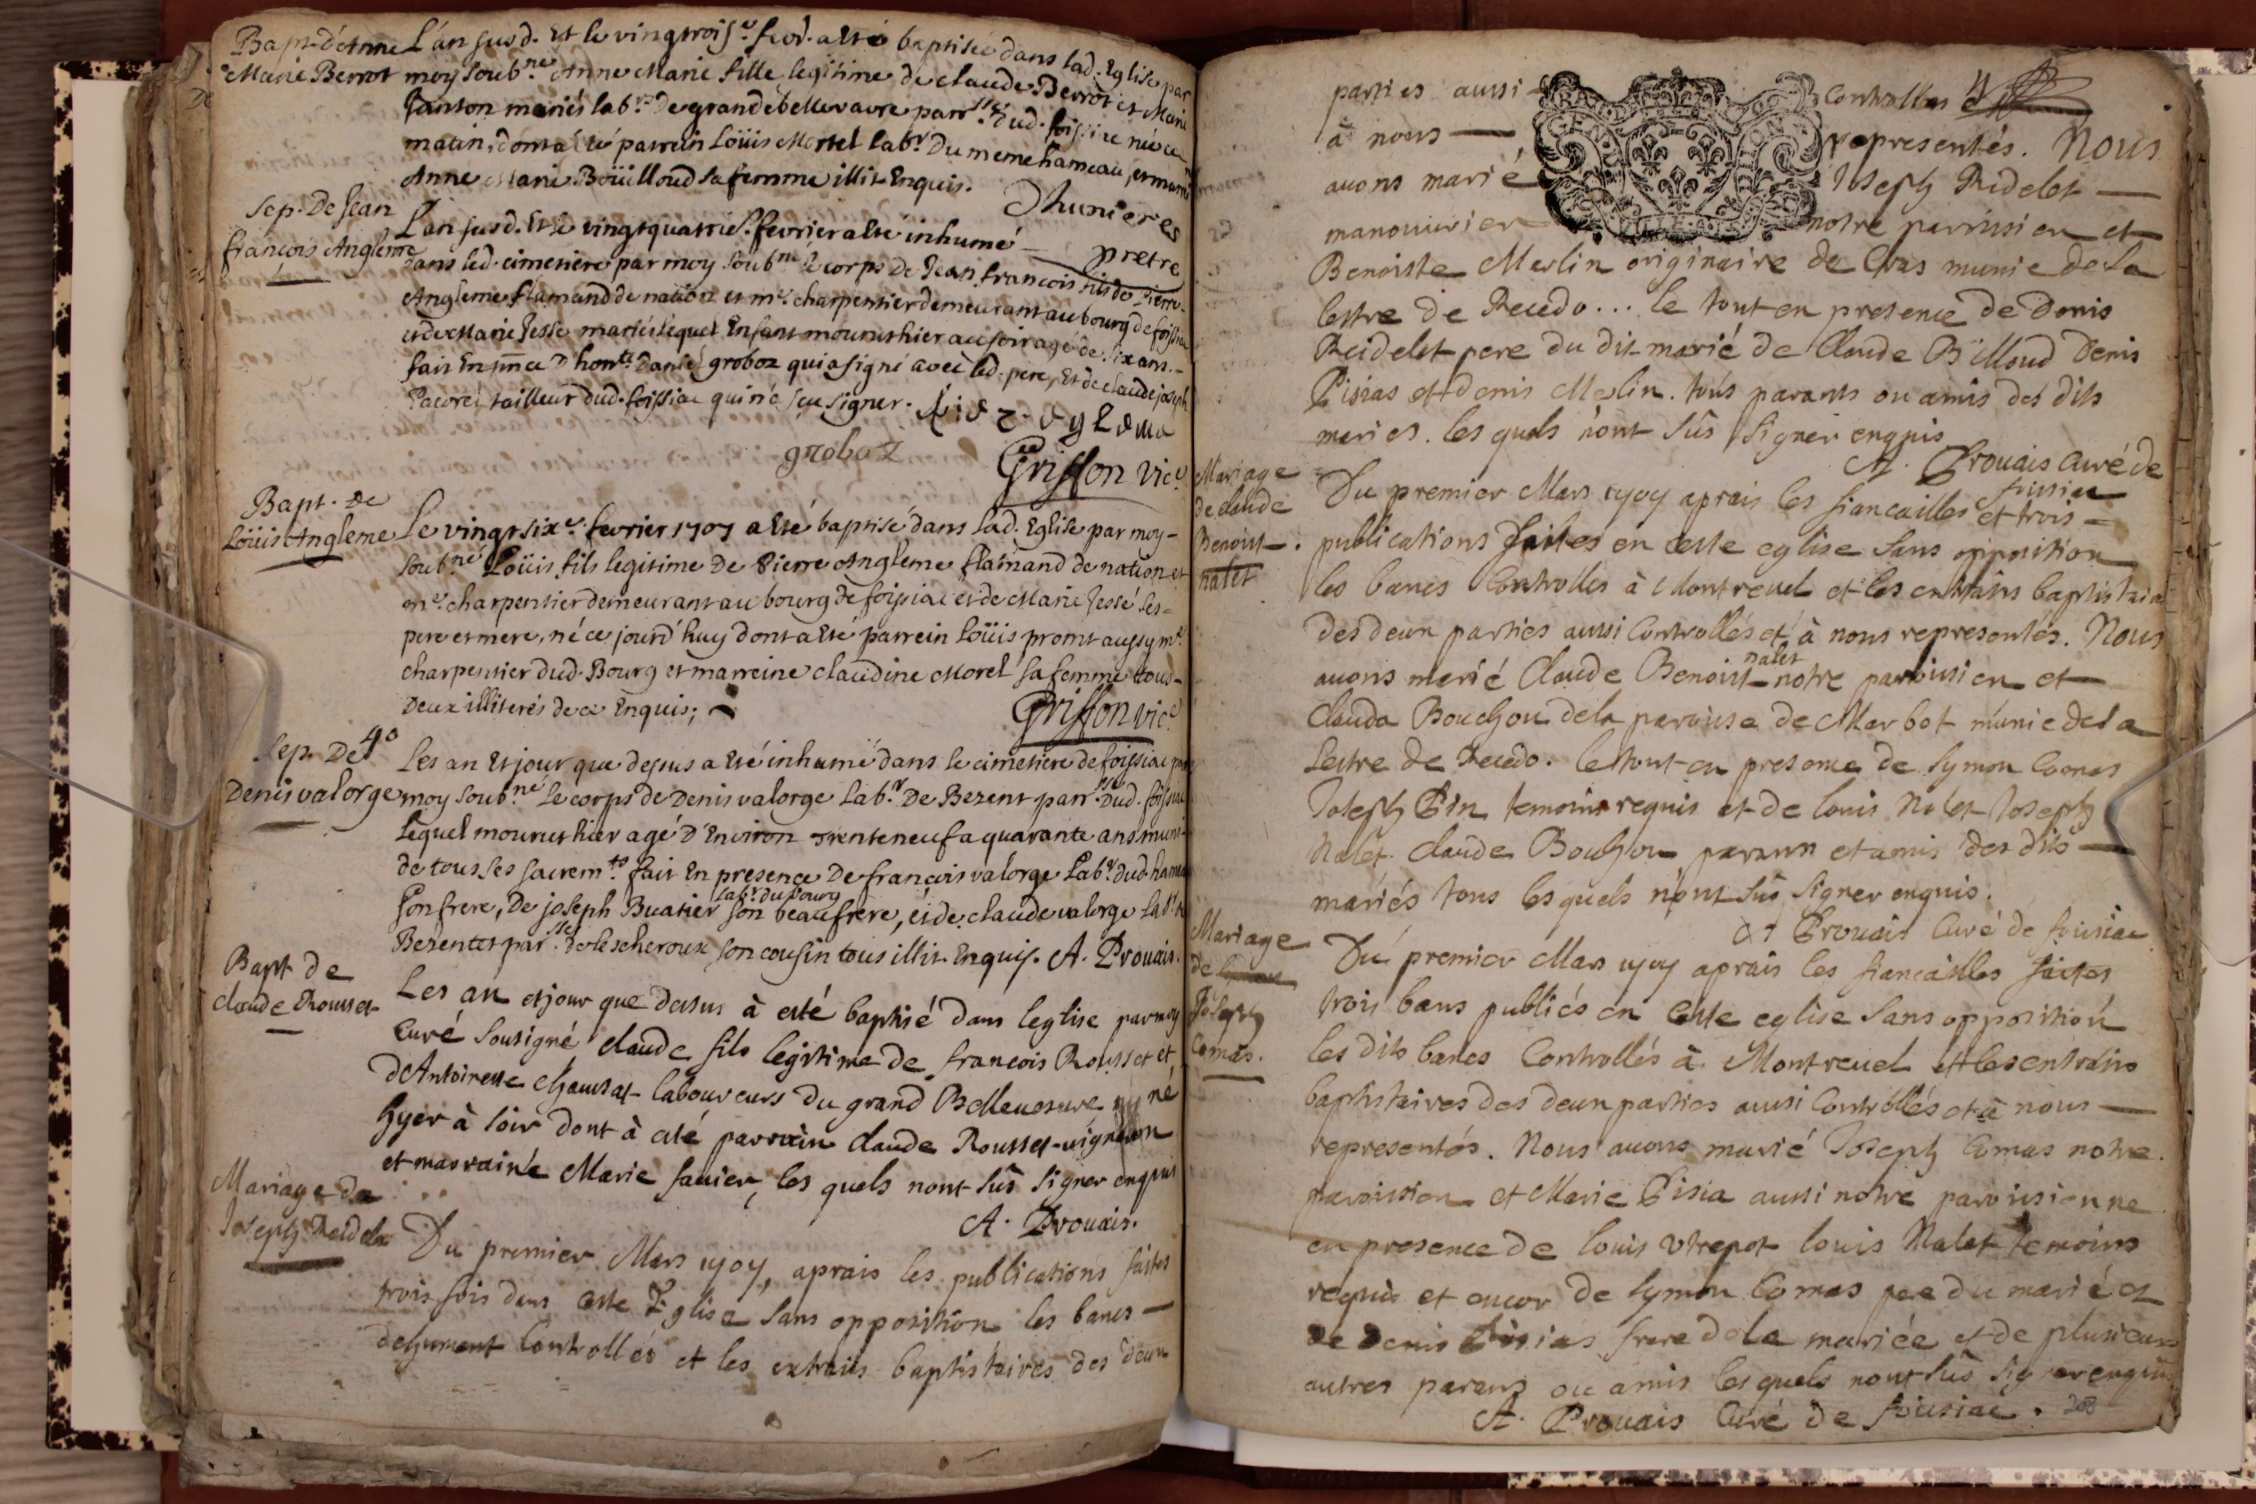 Bapt. d'Anne
Marie Berrot
L'an susd. Et le vingtrois.e fevr. a Eté baptisée dans lad. Eglise par
moy soub.né Anne Marie fille legitime de claude Berrot et Marie
Janton mariés lab.rs De grand bellevavre parr.sse dud. foissia née ce
matin, dont a été parrein Loüis Mortel lab.r Du meme hameau, et marr.
Anne Marie Boüilloud sa femme illit. Enquis.
Munieres
pretre
Sep. De Jean
françois Angleme
L'an susd. Et le vingtquatrie.e fevrier a Eté inhumé
dans led. cimetiere par moy soub.né le corps de Jean françois fils de Pierre
Angleme flamand de nation et m.e charpentier demeurant au bourg de foissia
et de Marie Jesse mariés lequel Enfant mourut hier au soir agé de six ans.
fait En pnce D'hon.te Daniel groboz qui a signé avec led. pere, Et de claude joseph
Pacoret tailleur dud. foissiac qui n'a sçeu signer.
groboz
Griffon vic.e
Bapt. De
Loüis Angleme
Le vingt six.e fevrier 1707 a Eté baptisé dans lad. Eglise par moy
soub.né Loüis fils legitime De Pierre Angleme flamand de nation et
m.e charpentier demeurant au bourg de foissiac et de Marie Jessé ses
pere et mere, né ce jourd'huy dont a Eté parrein Loüis promt aussy m.e
charpentier dud. Bourg et marreine claudine Morel sa femme tous
Deux illiterés de ce Enquis;
Griffon vic.e
Sep. De
40
Denis valorge
Les an Et jour que dessus a Eté inhumé dans le cimetiere de foissiac par
moy soub.né Le corps de Denis valorge Lab.r De Bezent parr.sse Dud. foissia
Lequel mourut hier agé D'Environ trenteneuf a quarante ans muni
de tous ses sacrem.ts fait En presence De françois valorge Lab.r dud. hameau
son frere, De joseph Buatier son beaufrere, et de claude valorge Lab.r
Lab.r du bourg
Bezentet par.sse de lescheroux son cousin tous illit. Enquis. A. Prouais.
Bapt de
claude Rousset
Les an et jour que dessus à eté baptisé dans leglise par moy
Curé sousigné claude fils legitime de françois Rousset et
d'Antoinette Chaussat laboureurs du grand Bellevesvre né
hyer à soir dont à eté parrain claude Rousset vigneron
et marraine Marie favier, les quels nont sûs signer enquis
A. Prouais.
Mariage de
Joseph Reidelet
Du premier Mars 1707, aprais les publications faites
trois fois dans cette Eglise sans opposition les bancs
dehument Controllés et les extraits baptistaires des deux
parties aussi Controllés et
à nous representés. Nous
avons marié Joseph Ridelet
manouvrier notre parrisien et
Benoiste Merlin originaire de Cras munie de la
lettre de Recedo... le tout en presence de Denis
Reidelet pere du dit marié de Claude Billoud Denis
Pisias et denis Merlin. tous parants ou amis des dits
maries. les quels n'ont sûs signer enquis
A. Prouais Curé de
foissiac
Mariage
de claude
Benoist
nalet
Du premier Mars 1707 aprais les fiancailles et trois
publications faites en cette eglise sans opposition
les bancs Controlles à Montrevel et les extraits baptistaires
des deux parties aussi Controllés et à nous representés. Nous
avons marié Claude Benoist notre paroissien et
nalet
Clauda Bouchou dela paroisse de Marbot munie dela
Lettre de Recedo. le tout en presence de Symon Comas
Joseph Pin temoins requis et de louis Nalet Joseph
Nalet claude Bouchou parann et amis des dits
mariés tous les quels n'ont sûs signer enquis.
A Prouais Curé de foissiac
Mariage
de
Joseph
Comas.
Du premier Mars 1707 aprais les fiancailles faites
trois bans publiés en cette eglise sans opposition
les dits bancs Controllés à Montrevel et les entraits
baptistaires des deux parties aussi Controllés et à nous
representés. Nous avons marié Joseph Comas notre
paroissien et Marie Pisia aussi notre paroissienne
en presence de louis Utrepot louis Nalet temoins
requis et encor de symon Comas pere du marié et
de denis Pisias frere dela mariée et de plusieurs
autres parens ou amis les quels nont sûs signer enquis
A. Prouais Curé de foissiac.
208